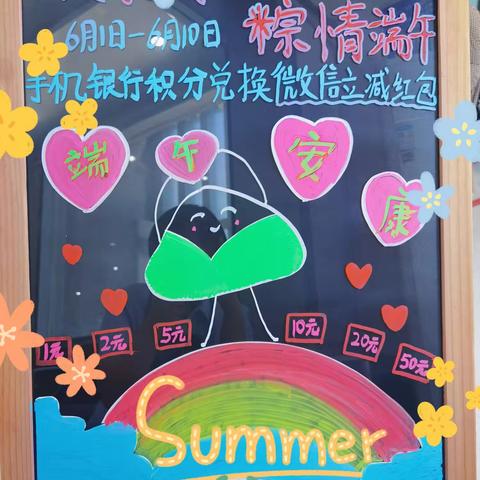 6月1日-6月10日
粽情端午
手机银行积分兑换微信立减红包
端午安康
1元 2元 5元 10元 20元 50元
Summer